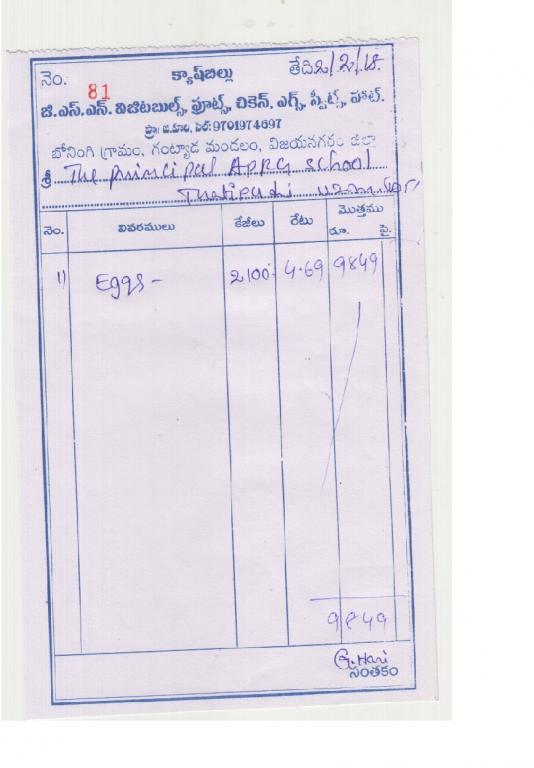 నెం. 81 క్యాష్‌బిల్లు తేది 2/2/18.
జి.ఎస్.ఎన్. విజిటబుల్స్, ఫ్రూట్స్, చికెన్, ఎగ్స్, స్వీట్స్, హాట్.
ప్రొ: జి.హరి, సెల్:9701974697
బోనింగి గ్రామం, గంట్యాడ మండలం, విజయనగరం జిల్లా
శ్రీ The principal APRG school
Thatipudi
నెం. వివరములు కేజీలు రేటు మొత్తము
రూ. పై.
1) Eggs - 2100 4.69 9849
9849
G. Hari
సంతకం